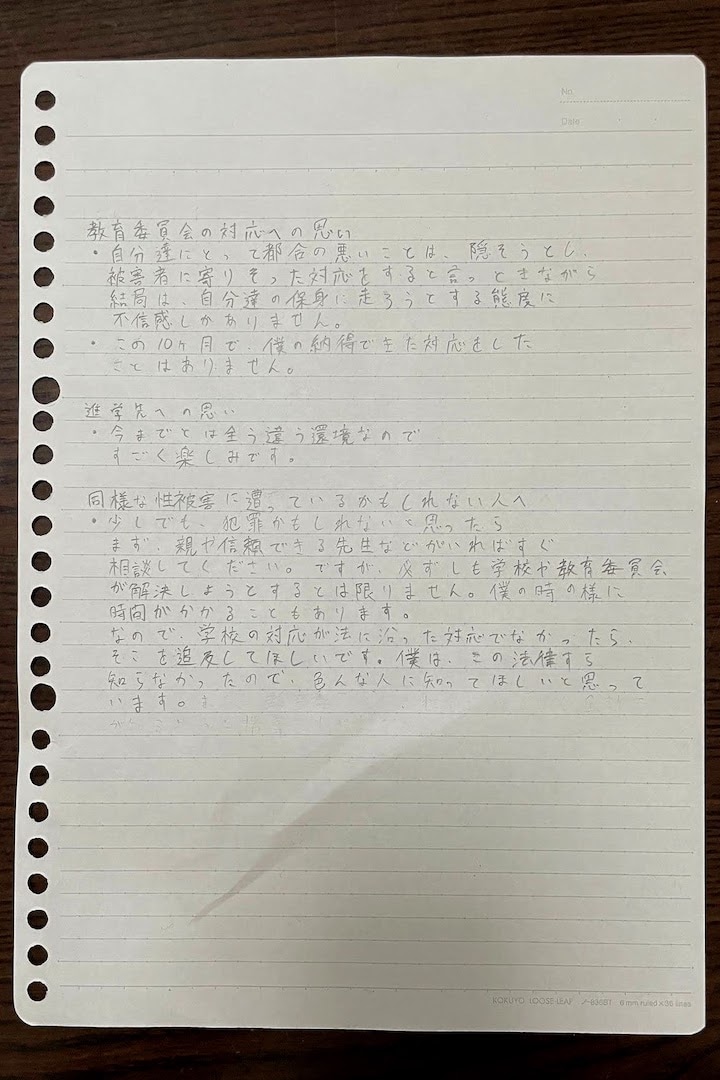 No.
Date
教育委員会の対応への思い
・自分達にとって都合の悪いことは、隠そうとし、
被害者に寄りそった対応をすると言っときながら
結局は、自分達の保身に走ろうとする態度に
不信感しかありません。
・この10ヶ月で、僕の納得できた対応をした
ことはありません。
進学先への思い
・今までとは全う違う環境なので
すごく楽しみです。
同様な性被害に遭っているかもしれない人へ
・少しでも、犯罪かもしれないと思ったら
まず、親や信頼できる先生などがいればすぐ
相談してください。ですが、必ずしも学校や教育委員会
が解決しようとするとは限りません。僕の時の様に
時間がかかることもあります。
なので、学校の対応が法に沿った対応でなかったら、
そこを追及してほしいです。僕は、この法律すら
知らなかったので、色んな人に知ってほしいと思って
います。
KOKUYO LOOSE-LEAF ノ-836BT 6 mm ruled×36 lines